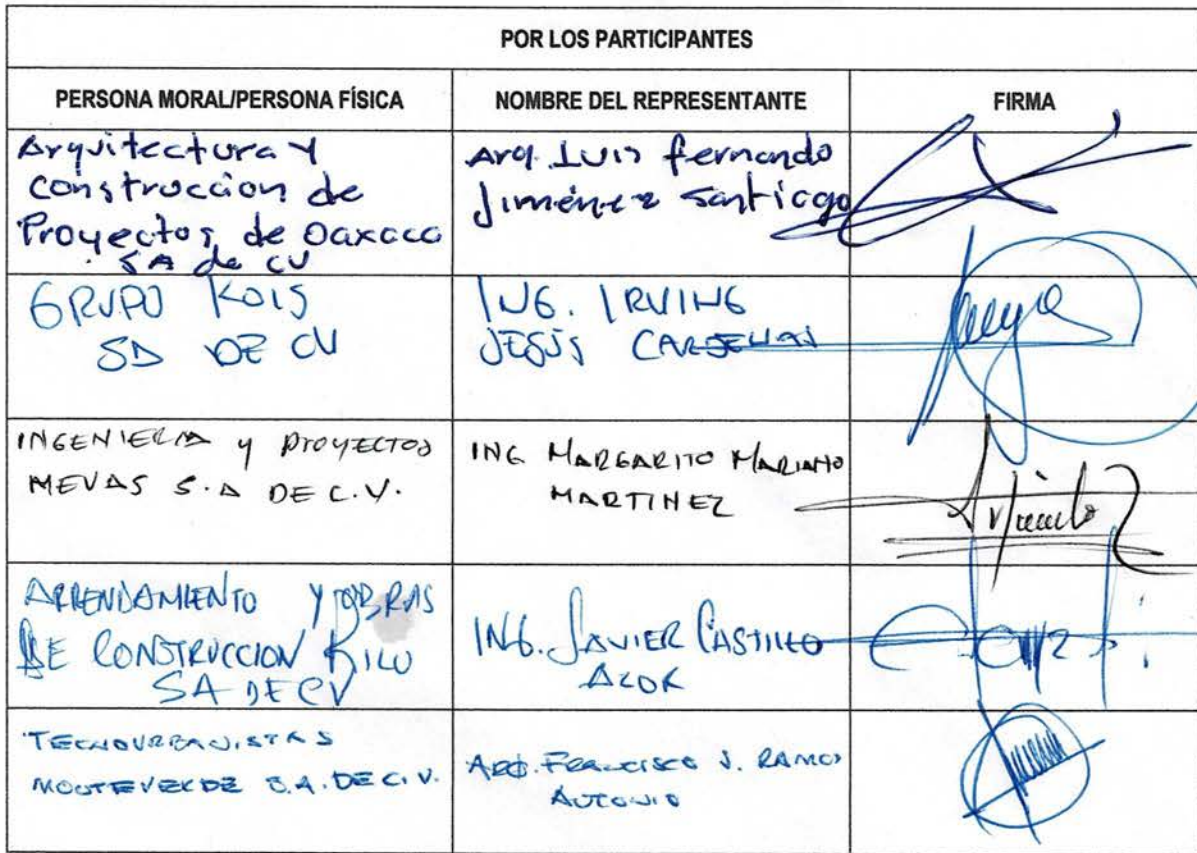 POR LOS PARTICIPANTES
PERSONA MORAL/PERSONA FÍSICA NOMBRE DEL REPRESENTANTE FIRMA
Arquitectura y
construccion de
Proyectos de Oaxaca
SA de CV
Arq. Luis fernando
Jiménez Santiago
GRUPO KOIS
SA DE CV
ING. IRVING
JESÚS CARDENAS
INGENIERIA y PROYECTOS
MEVAS S.A DE C.V.
ING MARGARITO MARIANO
MARTINEZ
ARRENDAMIENTO Y OBRAS
DE CONSTRUCCION KILU
SA DE CV
ING. JAVIER CASTILLO
AZOR
TECNOURBANISTAS
MONTEVERDE S.A. DE C.V.
ARQ. FRANCISCO J. RAMOS
ANTONIO